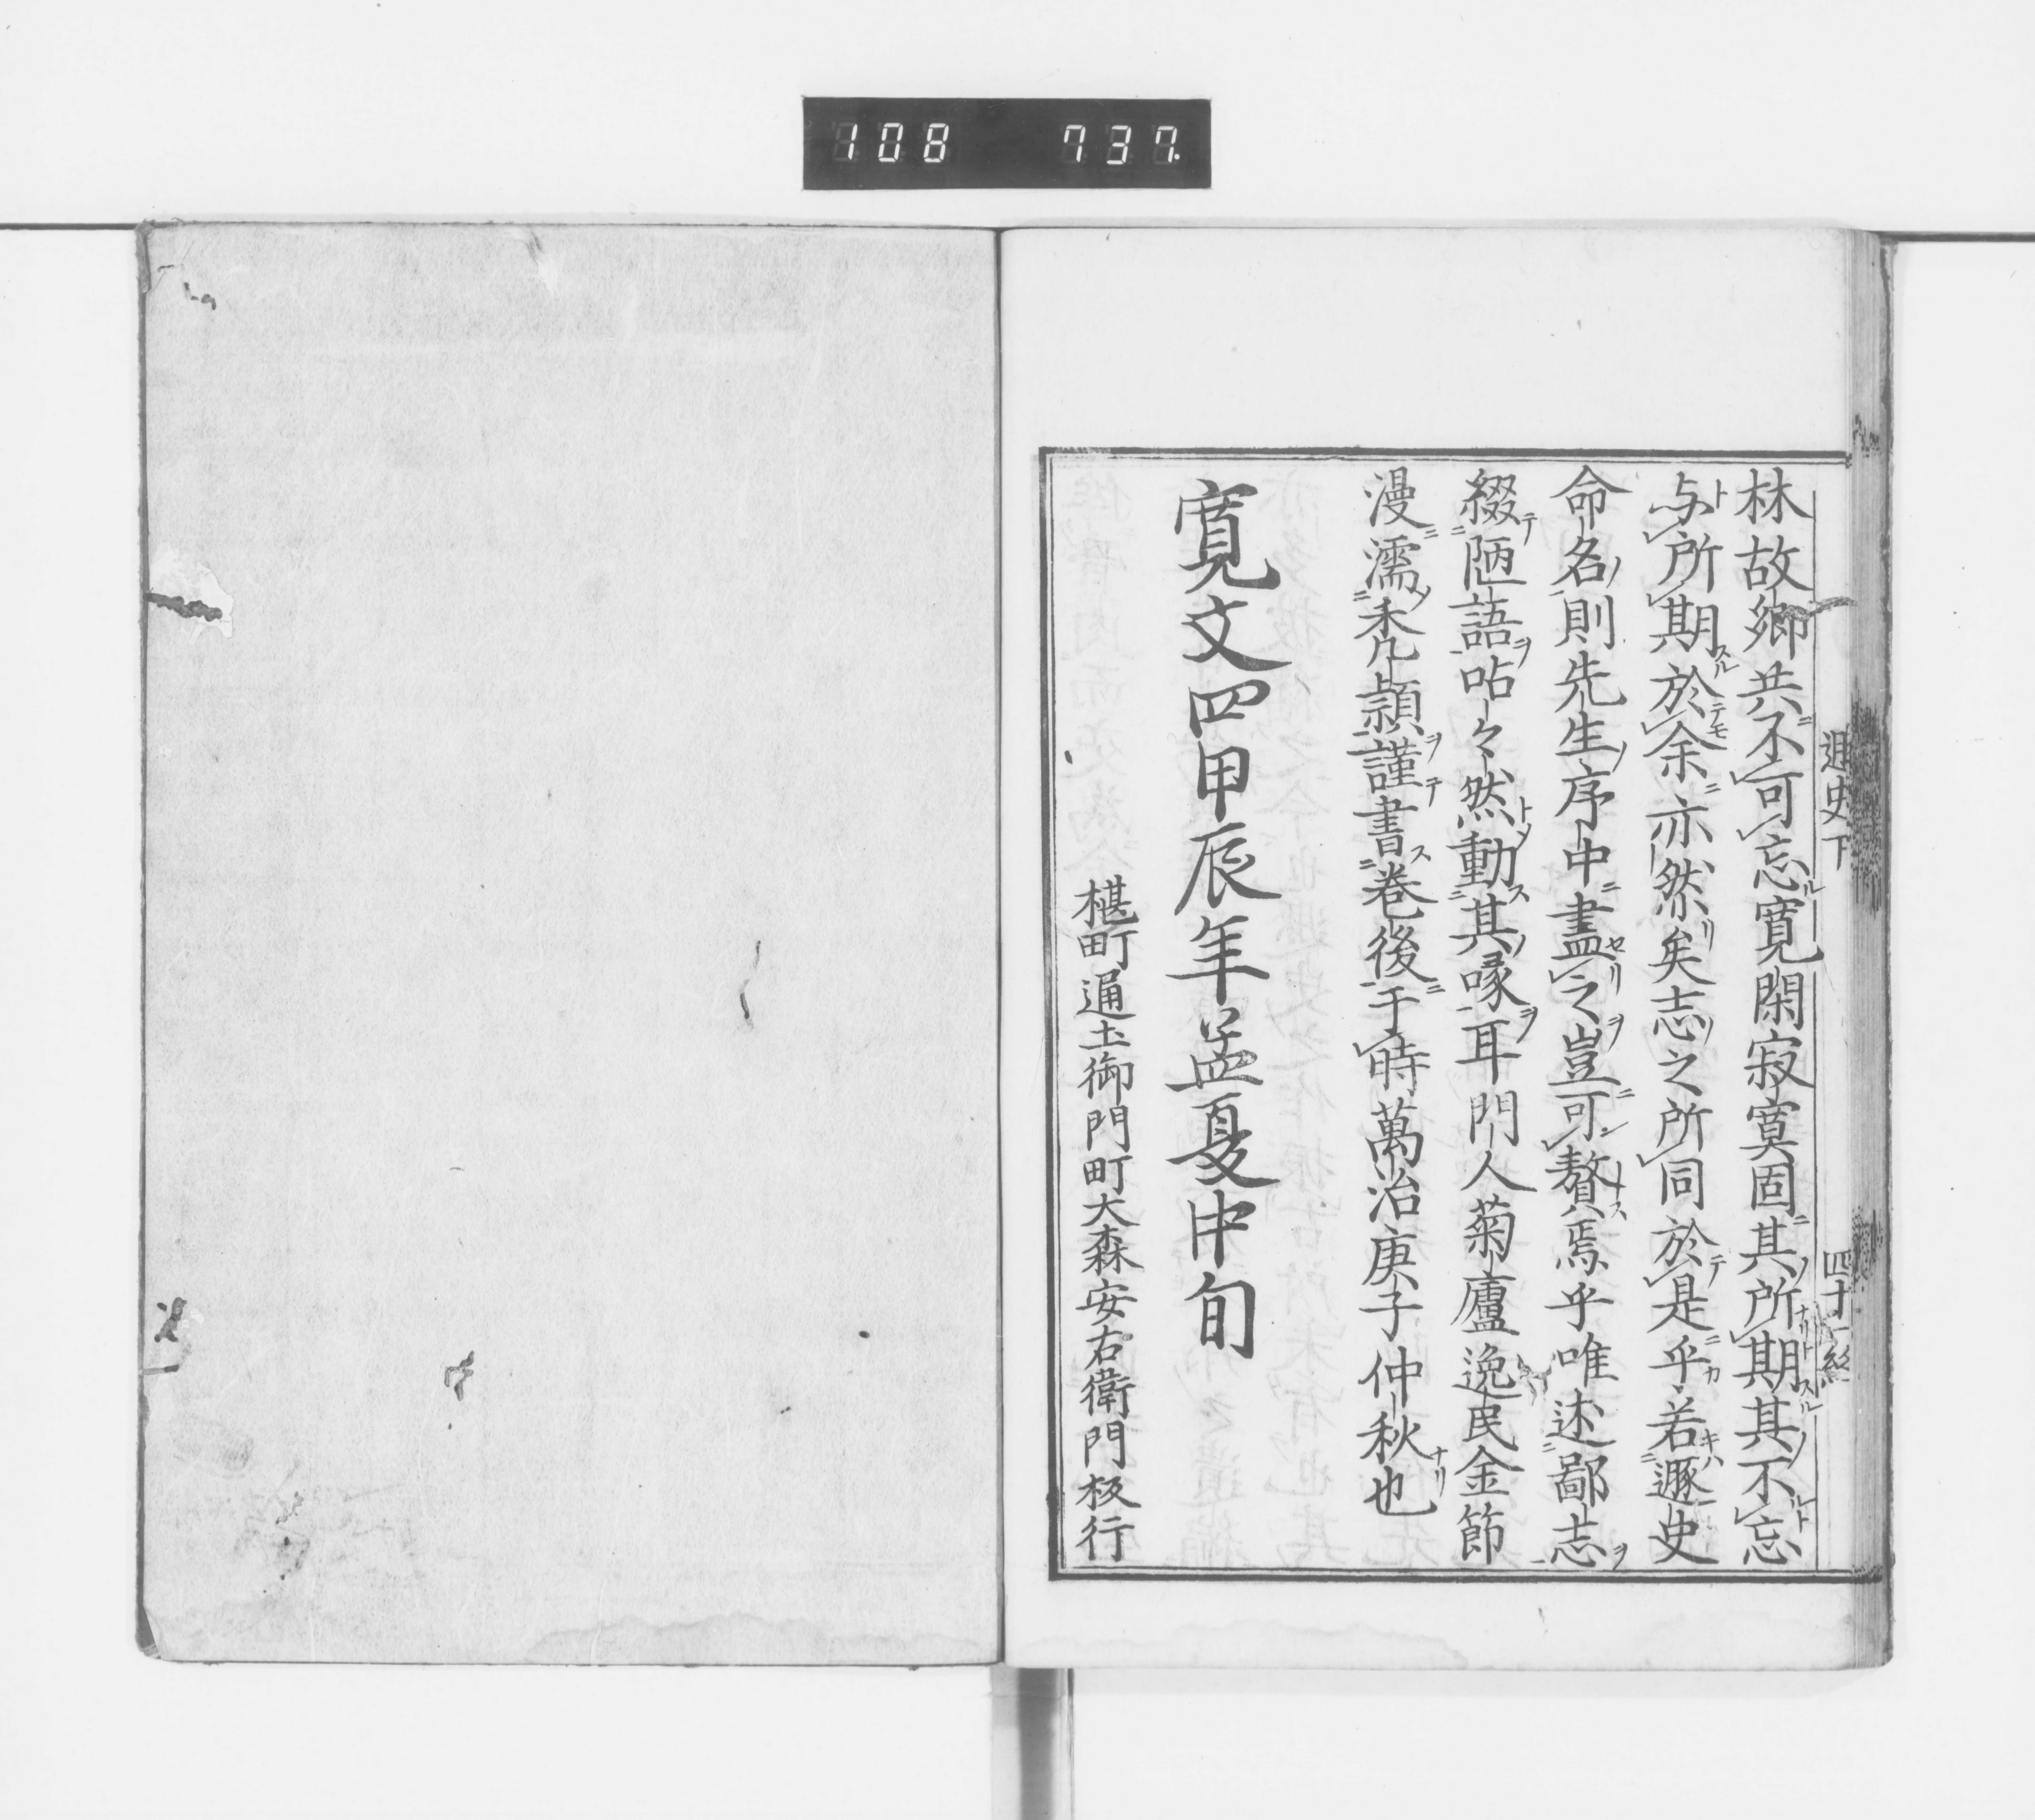 108 737.
遁史下 四十一終
林故郷共不可忘寛閑寂寞固其所期其不忘
与所期於余亦然矣志之所同於是乎若遯史
命名則先生序中盡之豈可贅焉乎唯述鄙志
綴陋語呫々然動其喙耳門人菊廬逸民金節
漫濡禿頴謹書巻後于時萬治庚子仲秋也
寛文四甲辰年孟夏中旬
椹町通土御門町大森安右衛門板行